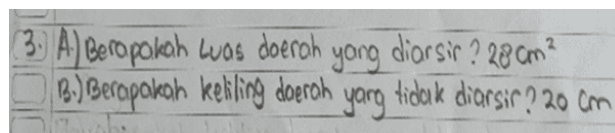 3. A.) Berapakah Luas daerah yang diarsir? 28 cm²
B.) Berapakah keliling daerah yang tidak diarsir? 20 cm